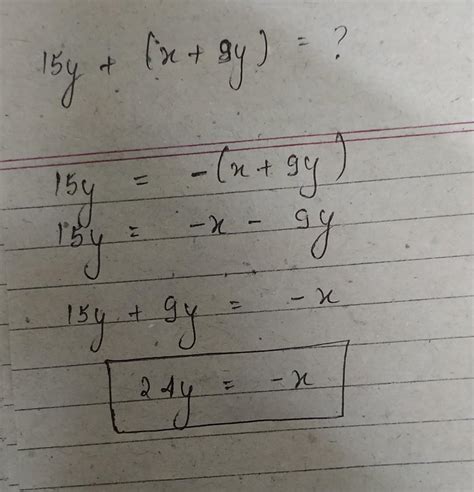 15y + (x + 9y) = ?
15y = -(x + 9y)
15y = -x - 9y
15y + 9y = -x
24y = -x